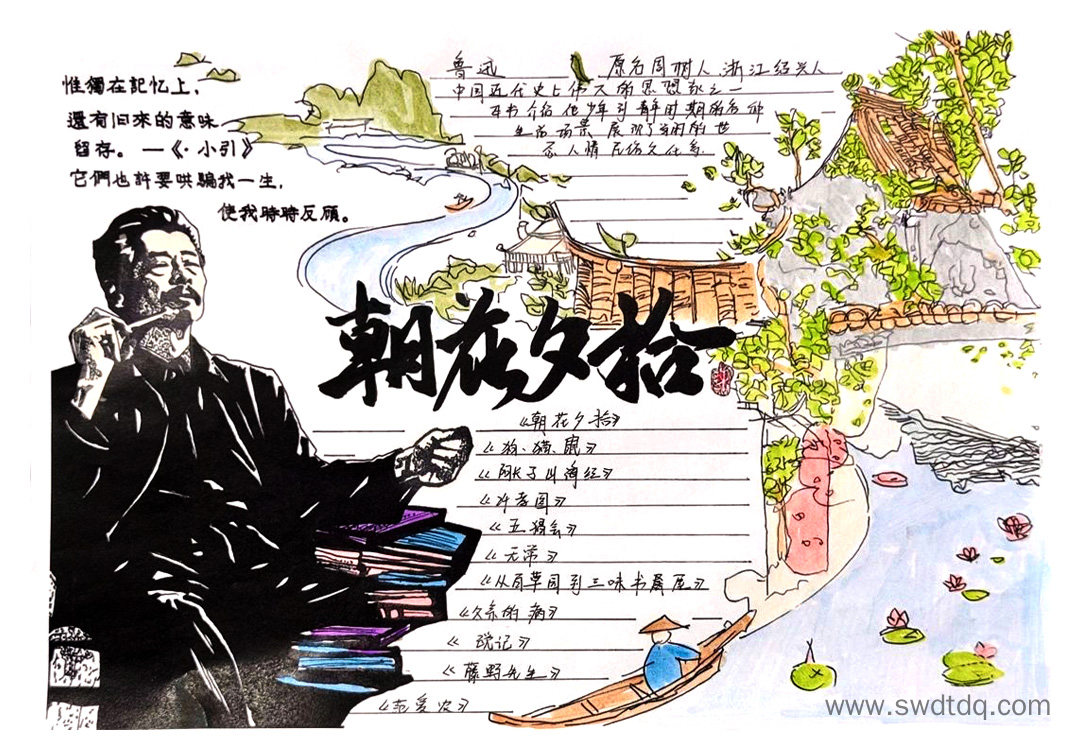 惟獨在記忆上，
還有旧來的意味
留存。—《·小引》
它們也許要哄騙我一生，
使我時時反顧。
鲁迅 原名周树人 浙江绍兴人
中国近代史上伟大的思想家之一
本书介绍他少年到青年时期的各种
生活场景 展示了当时的世
人情 民俗文化
朝花夕拾
《朝花夕拾》
《狗、猫、鼠》
《阿长 山海经》
孝图》
《五猖会》
《无常》
《从百草园到三味书屋》
《父亲的病》
《琐记》
《藤野先生》
《范爱农》
www.swdtdq.com